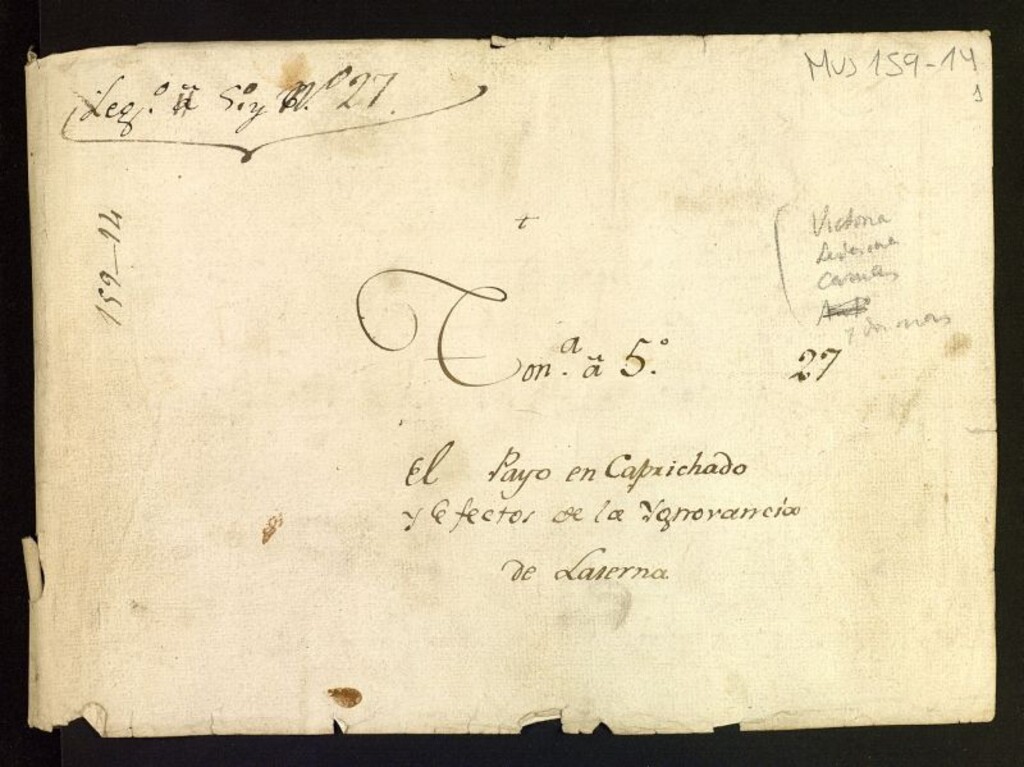 Leg.º â 5.º y N.º 27
MUS 159-14
1
159-14
+
Victoria
Carmen
y
Ton.ª â 5.º 27
El Payo en Caprichado
y Efectos de la Ygnorancia
de Laserna